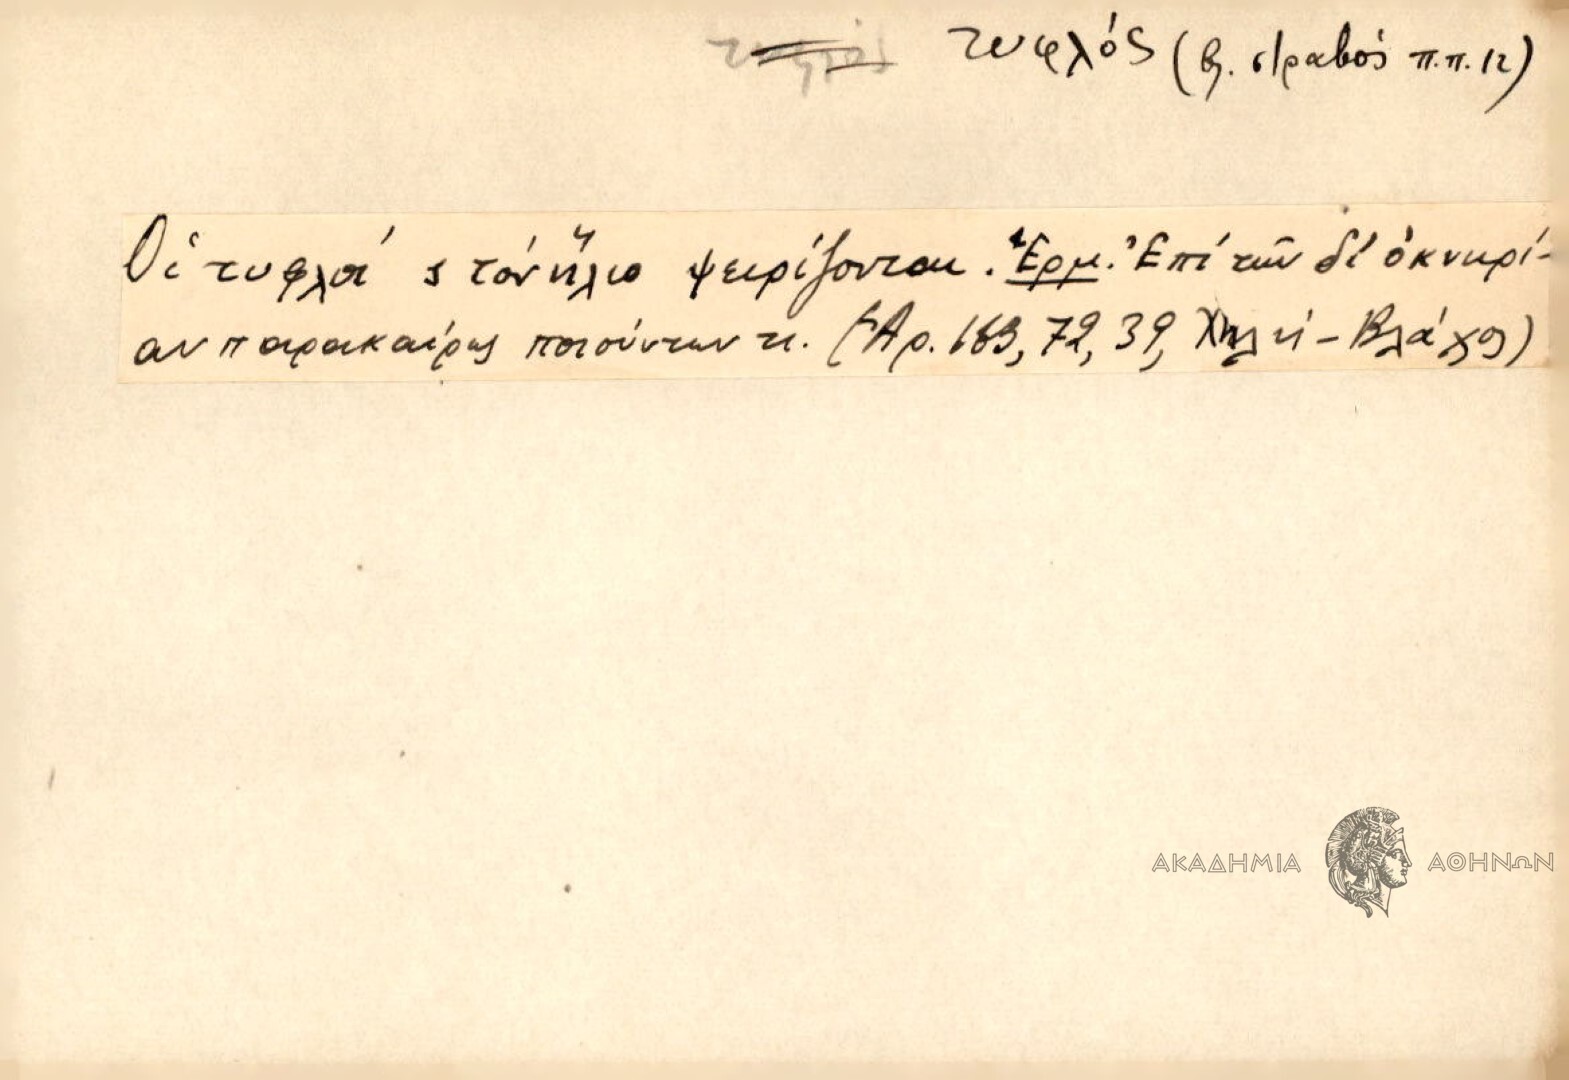 τυφλός (βλ. στραβός π.π. 12)
Οἱ τυφλοί ς τόν ἥλιο ψειρίζονται. Ἑρμ. Ἐπί τῶν δι' ὀκνηρί-
αν παρακαίρως ποιούντων τι. (Ἀρ. 169, 72, 39, Βλάχος)
ΑΚΑΔΗΜΙΑ ΑΘΗΝΩΝ